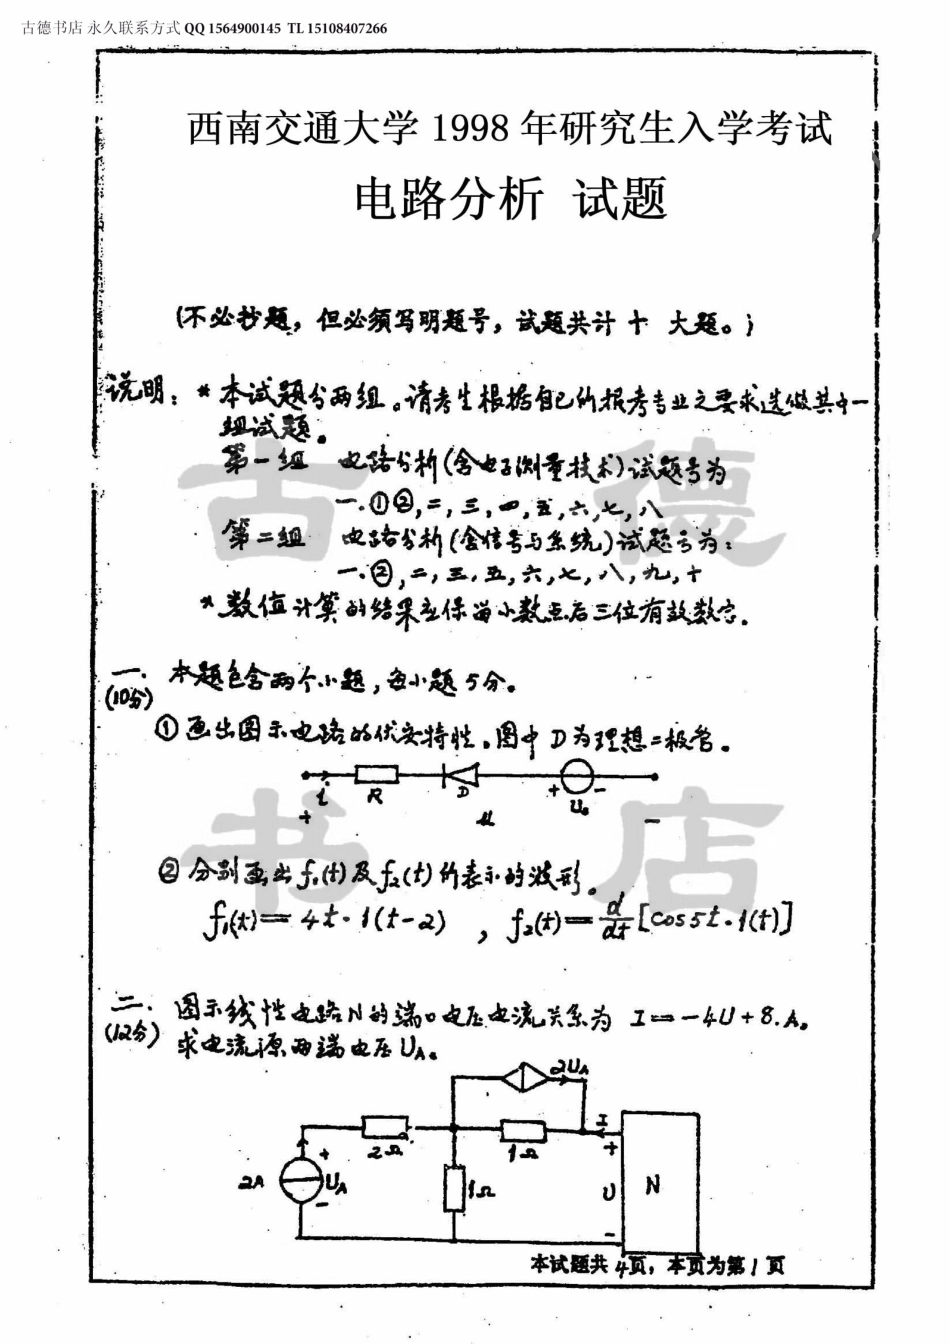 古德书店 永久联系方式 QQ 1564900145 TL 15108407266
西南交通大学 1998 年研究生入学考试
电路分析 试题
(不必抄题，但必须写明题号，试题共计 十 大题。)
说明：* 本试题分两组。请考生根据自己所报考专业之要求选做其中一
组试题。
第一组 电路分析(含电子测量技术)试题号为
一.①②,二,三,四,五,六,七,八
第二组 电路分析(含信号与系统)试题号为：
一.②,二,三,五,六,七,八,九,十
* 数值计算的结果应保留小数点后三位有效数字.
一. 本题包含两个小题，每小题5分。
(10分)
① 画出图示电路的伏安特性。图中 D为理想二极管。
i R D U₀
+ u −
+ −
② 分别画出 f₁(t)及f₂(t)所表示的波形。
f₁(t)=4t·1(t-2) , f₂(t)=d/dt[cos5t·1(t)]
二. 图示线性电路N的端口电压电流关系为 I=-4U+8.A。
(12分) 求电流源两端电压UA。
2UA
2Ω 1Ω I
2A + UA − 1Ω + U − N
本试题共 4页，本页为第1页
古德
书店